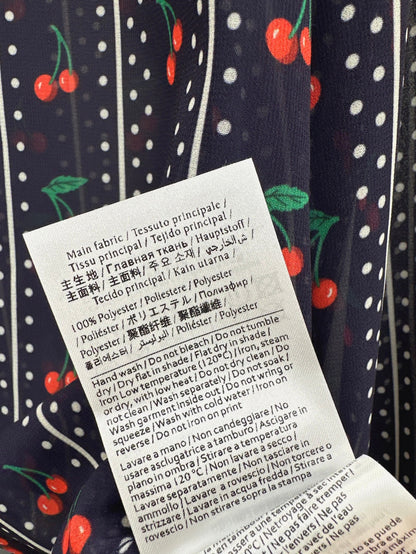 Main fabric / Tessuto principale /
Tissu principal / Tejido principal /
主生地 / Главная ткань / Hauptstoff /
主面料 / 主要面料 / 주요 소재 /
Tecido principal / Kain utama /
100% Polyester / Poliestere / Polyester
/ Poliéster / ポリエステル / Полиэфир /
Polyester / 聚酯纤维 / 聚酯纖維 /
폴리에스터 / البوليستر / Poliéster / Polyester
Hand wash / Do not bleach / Do not tumble
dry / Dry flat in shade / Flat dry in shade /
Iron Low temperature (120°C) / Iron, steam
or dry, with low heat / Do not dry clean / Do
not clean / Wash separately / Do not soak /
Wash garment inside out / Do not wring or
squeeze / Wash with cold water / Iron on
reverse / Do not iron on print
Lavare a mano / Non candeggiare / No
usare asclugatrice a tamburo / Ascigare in
piano in ombra / Stirare a temperatura
massima 120°C / Non lavare a secco /
Lavare separatamente / Non tenere in
ammollo / Lavare a rovescio / Non torcere o
strizzare / Lavare in acqua fredda / Stirare a
rovescio / Non stirare sopra la stampa